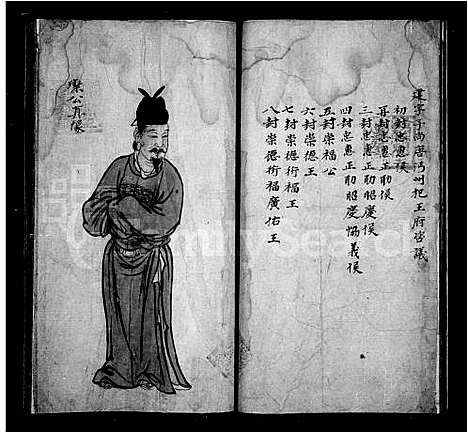 建寧于尚居沔州祀王府咨議
初封忠惠侯
再封忠惠正助侯
三封忠惠正助昭慶侯
四封忠惠正助昭慶協義侯
五封崇福公
六封崇德王
七封崇德衍福王
八封崇德衍福廣佑王
公肖像
FamilySearch